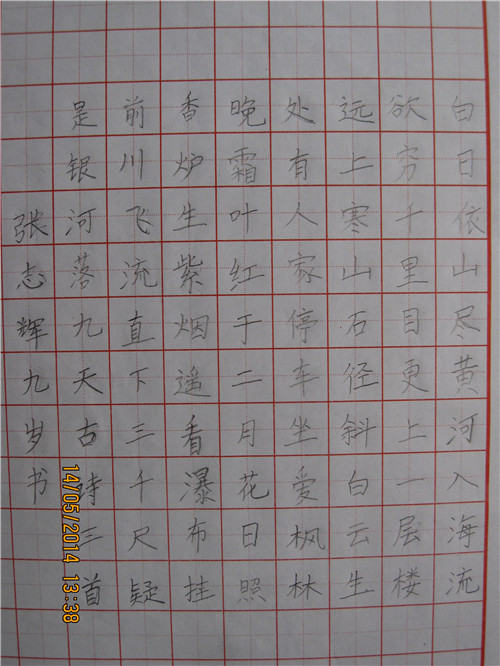 白日依山尽黄河入海流
欲穷千里目更上一层楼
远上寒山石径斜白云生
处有人家停车坐爱枫林
晚霜叶红于二月花日照
香炉生紫烟遥看瀑布挂
前川飞流直下三千尺疑
是银河落九天古诗三首
张志辉九岁书
14/05/2014 13:38